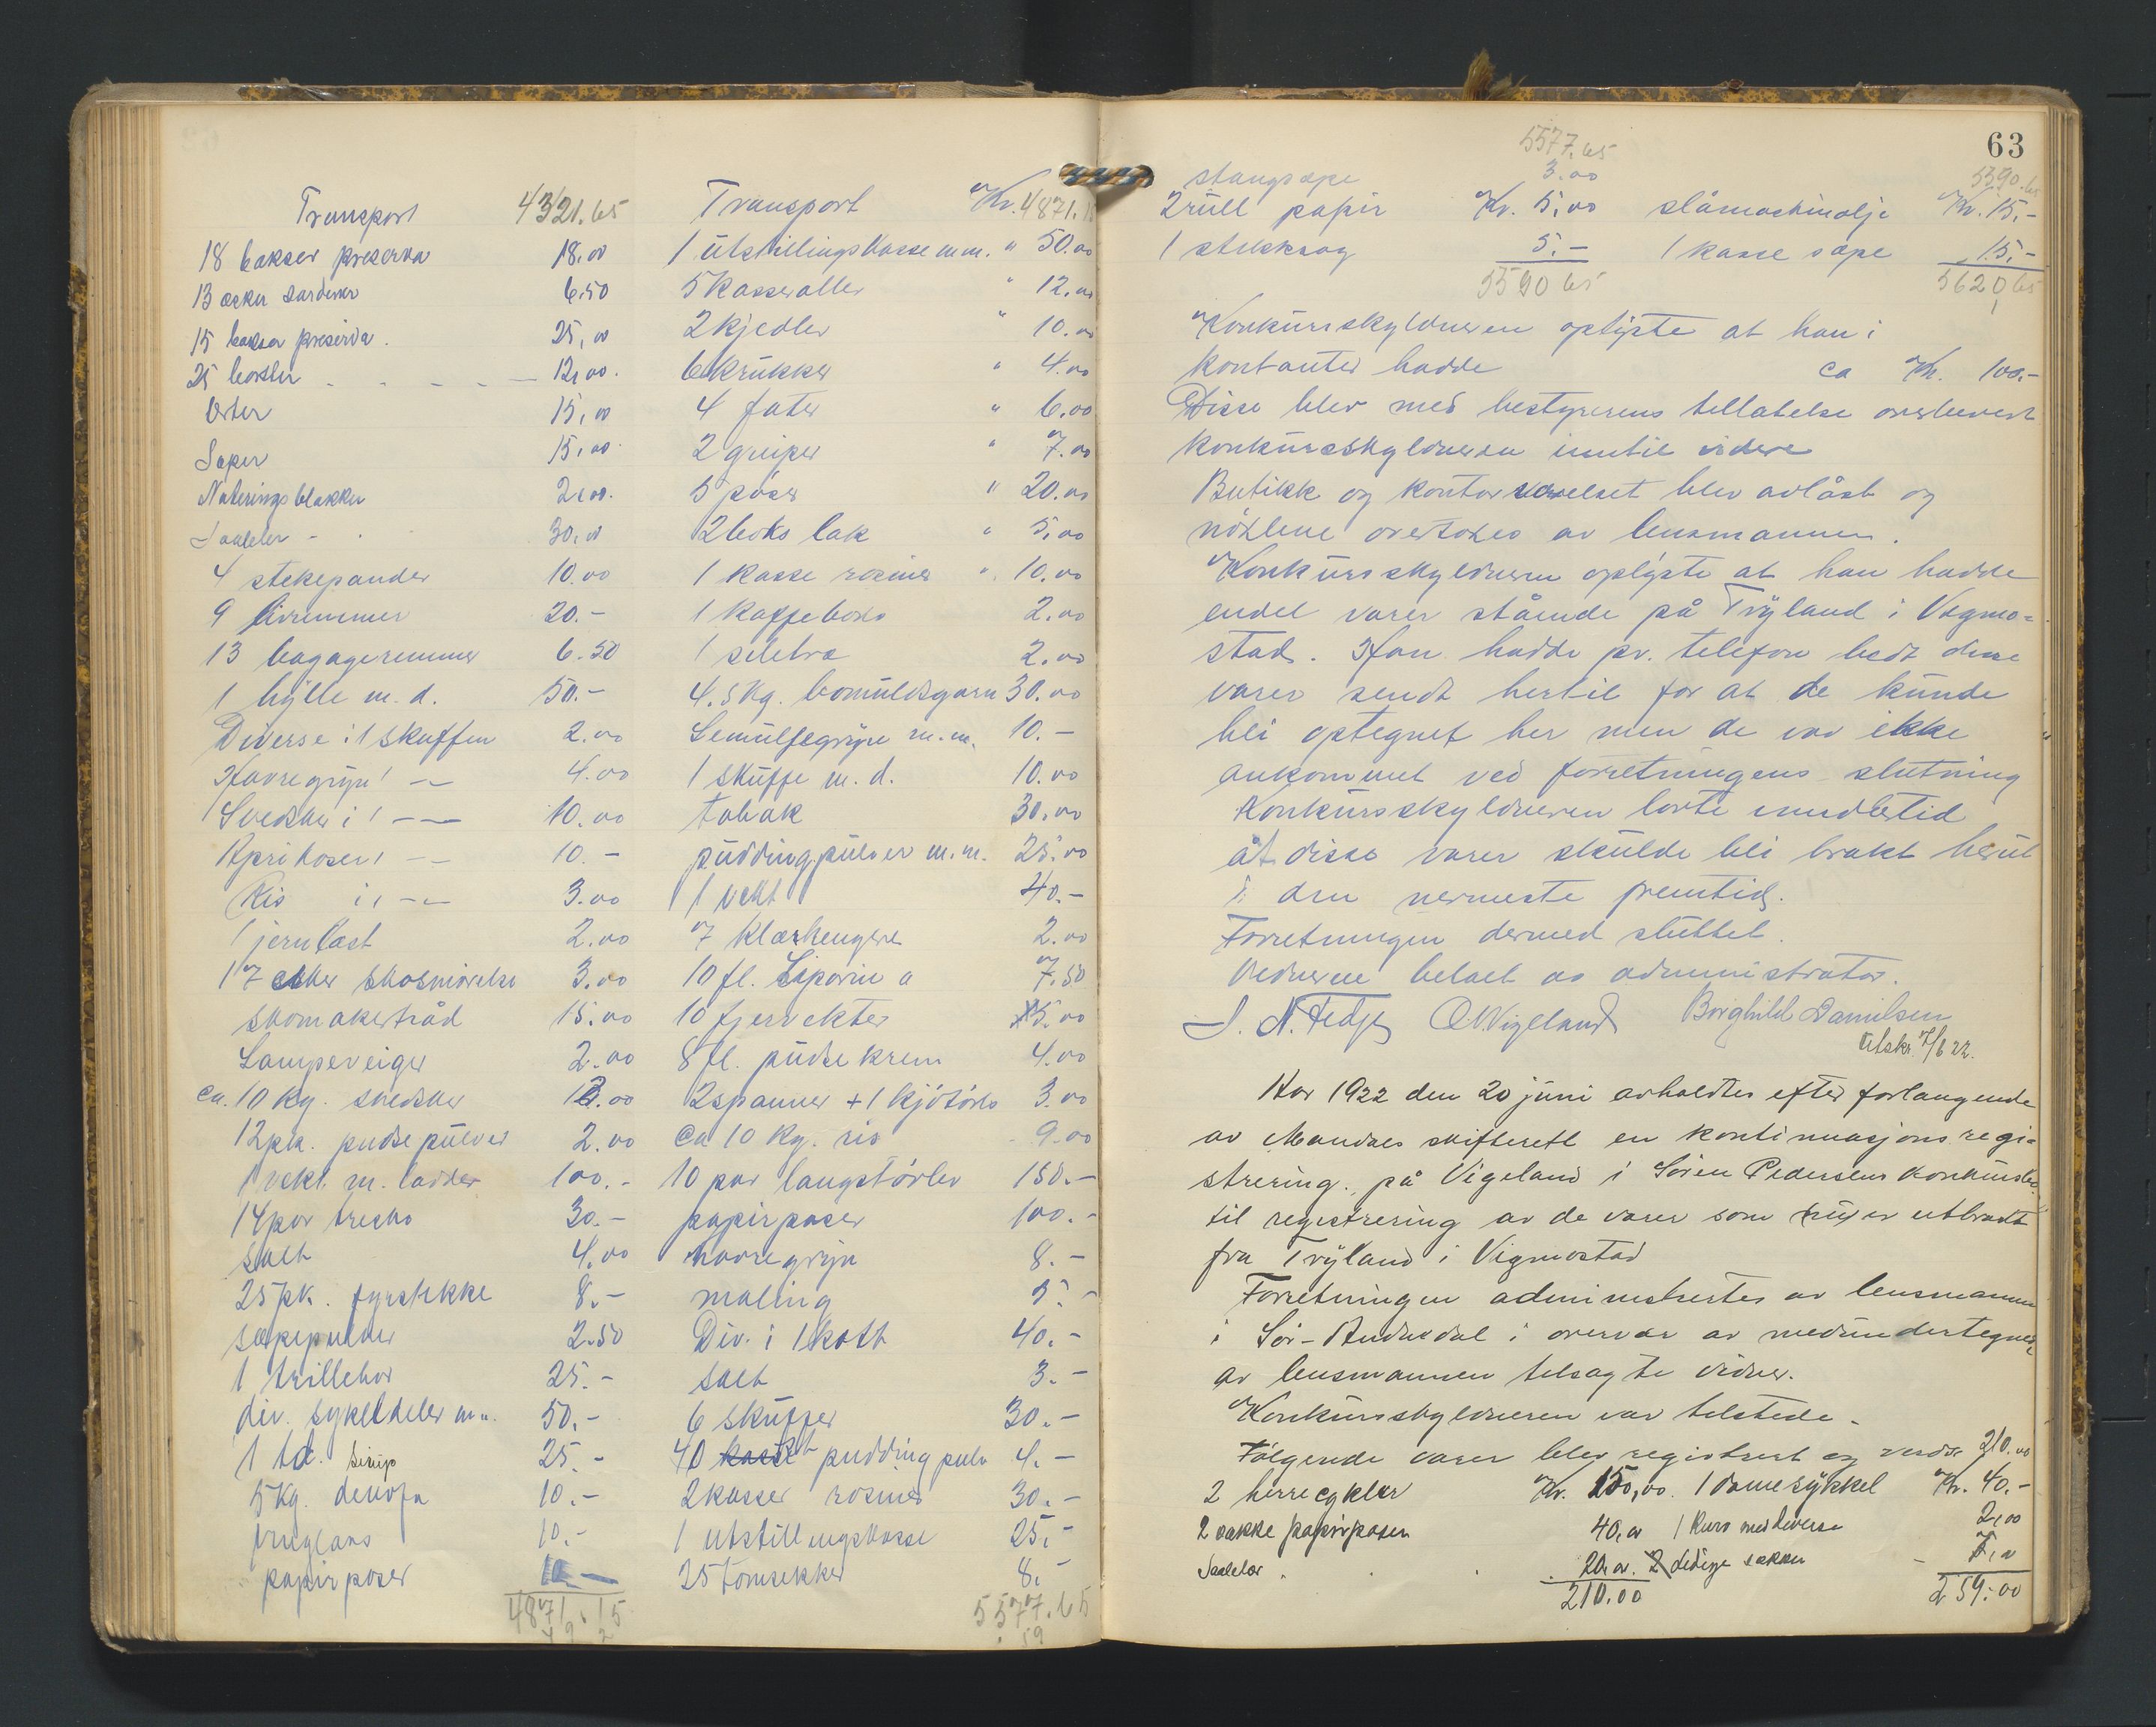 Transport 4321.65
18 bokser preserva 18.00
13 æsker sardiner 6.50
15 bokser preserva. 25,00
25 bokser - - - - - 12,00.
Urter 15,00
Sæper 15,00
Noteringsblokker 2,00.
Saaleler - 30,00
4 stekepander 10.00
9 livremmer 20.-
13 bagageremmer 6.50
1 hylle m. d. 50.-
Diverse i 1 skuffen 2.00
Havregryn 1 -"- 4.00
Svedsker i 1 -"- 10.00
Aprikoser 1 -"- 10.-
Ris i 1 -"- 3.00
1 jernlast 2.00
17 esker skosmörelse 3.00
skomakertråd 15.00
Lampeveiger 2.00
ca. 10 kg. svedsker 12.00
12 pk. pudsepulver 2.00
1 vekt m. lodder 100.-
14 par tresko 30.-
salt 4.00
25 pk. fyrstikke 8.-
sæpepulver 2.50
1 trillebor 25.-
div. sykkeldeler m.m. 50.-
1 td. sirup 25.-
5 kg. denofa 10.-
praglans 10.-
papirposer 10.-
4871.15
Transport Kr. 4871.15
1 utstillingskasse m.m. " 50.00
5 kasseroller " 12.00
2 kjedler " 10.00
6 krukker " 4.00
4 fater " 6.00
2 greiper " 7.00
5 pöser " 20.00
2 boks lak " 5,00
1 kasse rosiner " 10.00
1 kaffeboks 2.00
1 seletræ 2.00
4.5 kg. bomuldsgarn 30.00
Semuljegryn m.m. 10.-
1 skuffe m. d. 10.00
tobak 30.00
puddingpulver m.m. 25.00
1 vekt 40.-
7 klæshengere 2.00
10 fl. Liporin a 7.50
10 fjervekter 15.00
8 fl. pudse krem 4.00
2 spanner + 1 kjötöks 3.00
ca 10 kg. ris 9.00
10 par langstövler 150.-
papirposer 100.-
havregryn 8.-
maling 5.-
Div. i 1 kott 40.-
salt 3.-
6 skuffer 30.-
40 puddingpulv 4.-
2 kasser rosiner 30.-
1 utstillingskasse 25.-
25 tomsekker 8.-
5577.65
63
5577.65
stangsæpe 3.00 5590.65
2 rull papir Kr. 5,00 slåmaskinolje Kr. 15,-
1 stikksag 5.- 1 kasse sæpe 15,-
5590 65 5620,65
Konkursskyldneren oplyste at han i
kontanter hadde ca Kr. 100.-
Disse blev med bestyrerens tillatelse overlevert
konkursskyldneren inntil videre
Butikk og kontorværelset blev avlåst og
nöklene overtokes av lensmannen.
Konkursskyldneren oplyste at han hadde
endel varer stående på Tryland i Vigmo-
stad. Han hadde pr. telefon bedt disse
varer sendt hertil for at de kunde
bli optegnet her men de var ikke
ankommet ved forretningens slutning
Konkursskyldneren lovte imidlertid
åt disse varer skulde bli brakt herut
i den nermeste fremtid.
Forretningen dermed sluttet.
Vidnerne betalt av administrator.
S. N. Fedje O Vigeland Borghild Danielsen
Utskr. 7/6 22.
Aar 1922 den 20 juni avholdtes efter forlangende
av Mandals skifterett en kontinuasjonsregi-
strering. på Vigeland i Sören Pedersens konkursbo
til registrering av de varer som nu er utbrakt
fra Tryland i Vigmostad
Forretningen administrertes av lensmannen
i Sör-Audnedal i overvær av medundertegnede
av lensmannen tilsagte vidner.
Konkursskyldneren var tilstede.
Fölgende varer blev registrert og verds. 210.00
2 herrecykler Kr. 150,00. 1 damesykkel Kr. 40.-
2 sække papirposer 40,00 1 kurv med diverse 2,00
Saaleler 20,00. 2 ledige sækker - 7,00
210.00 259.00